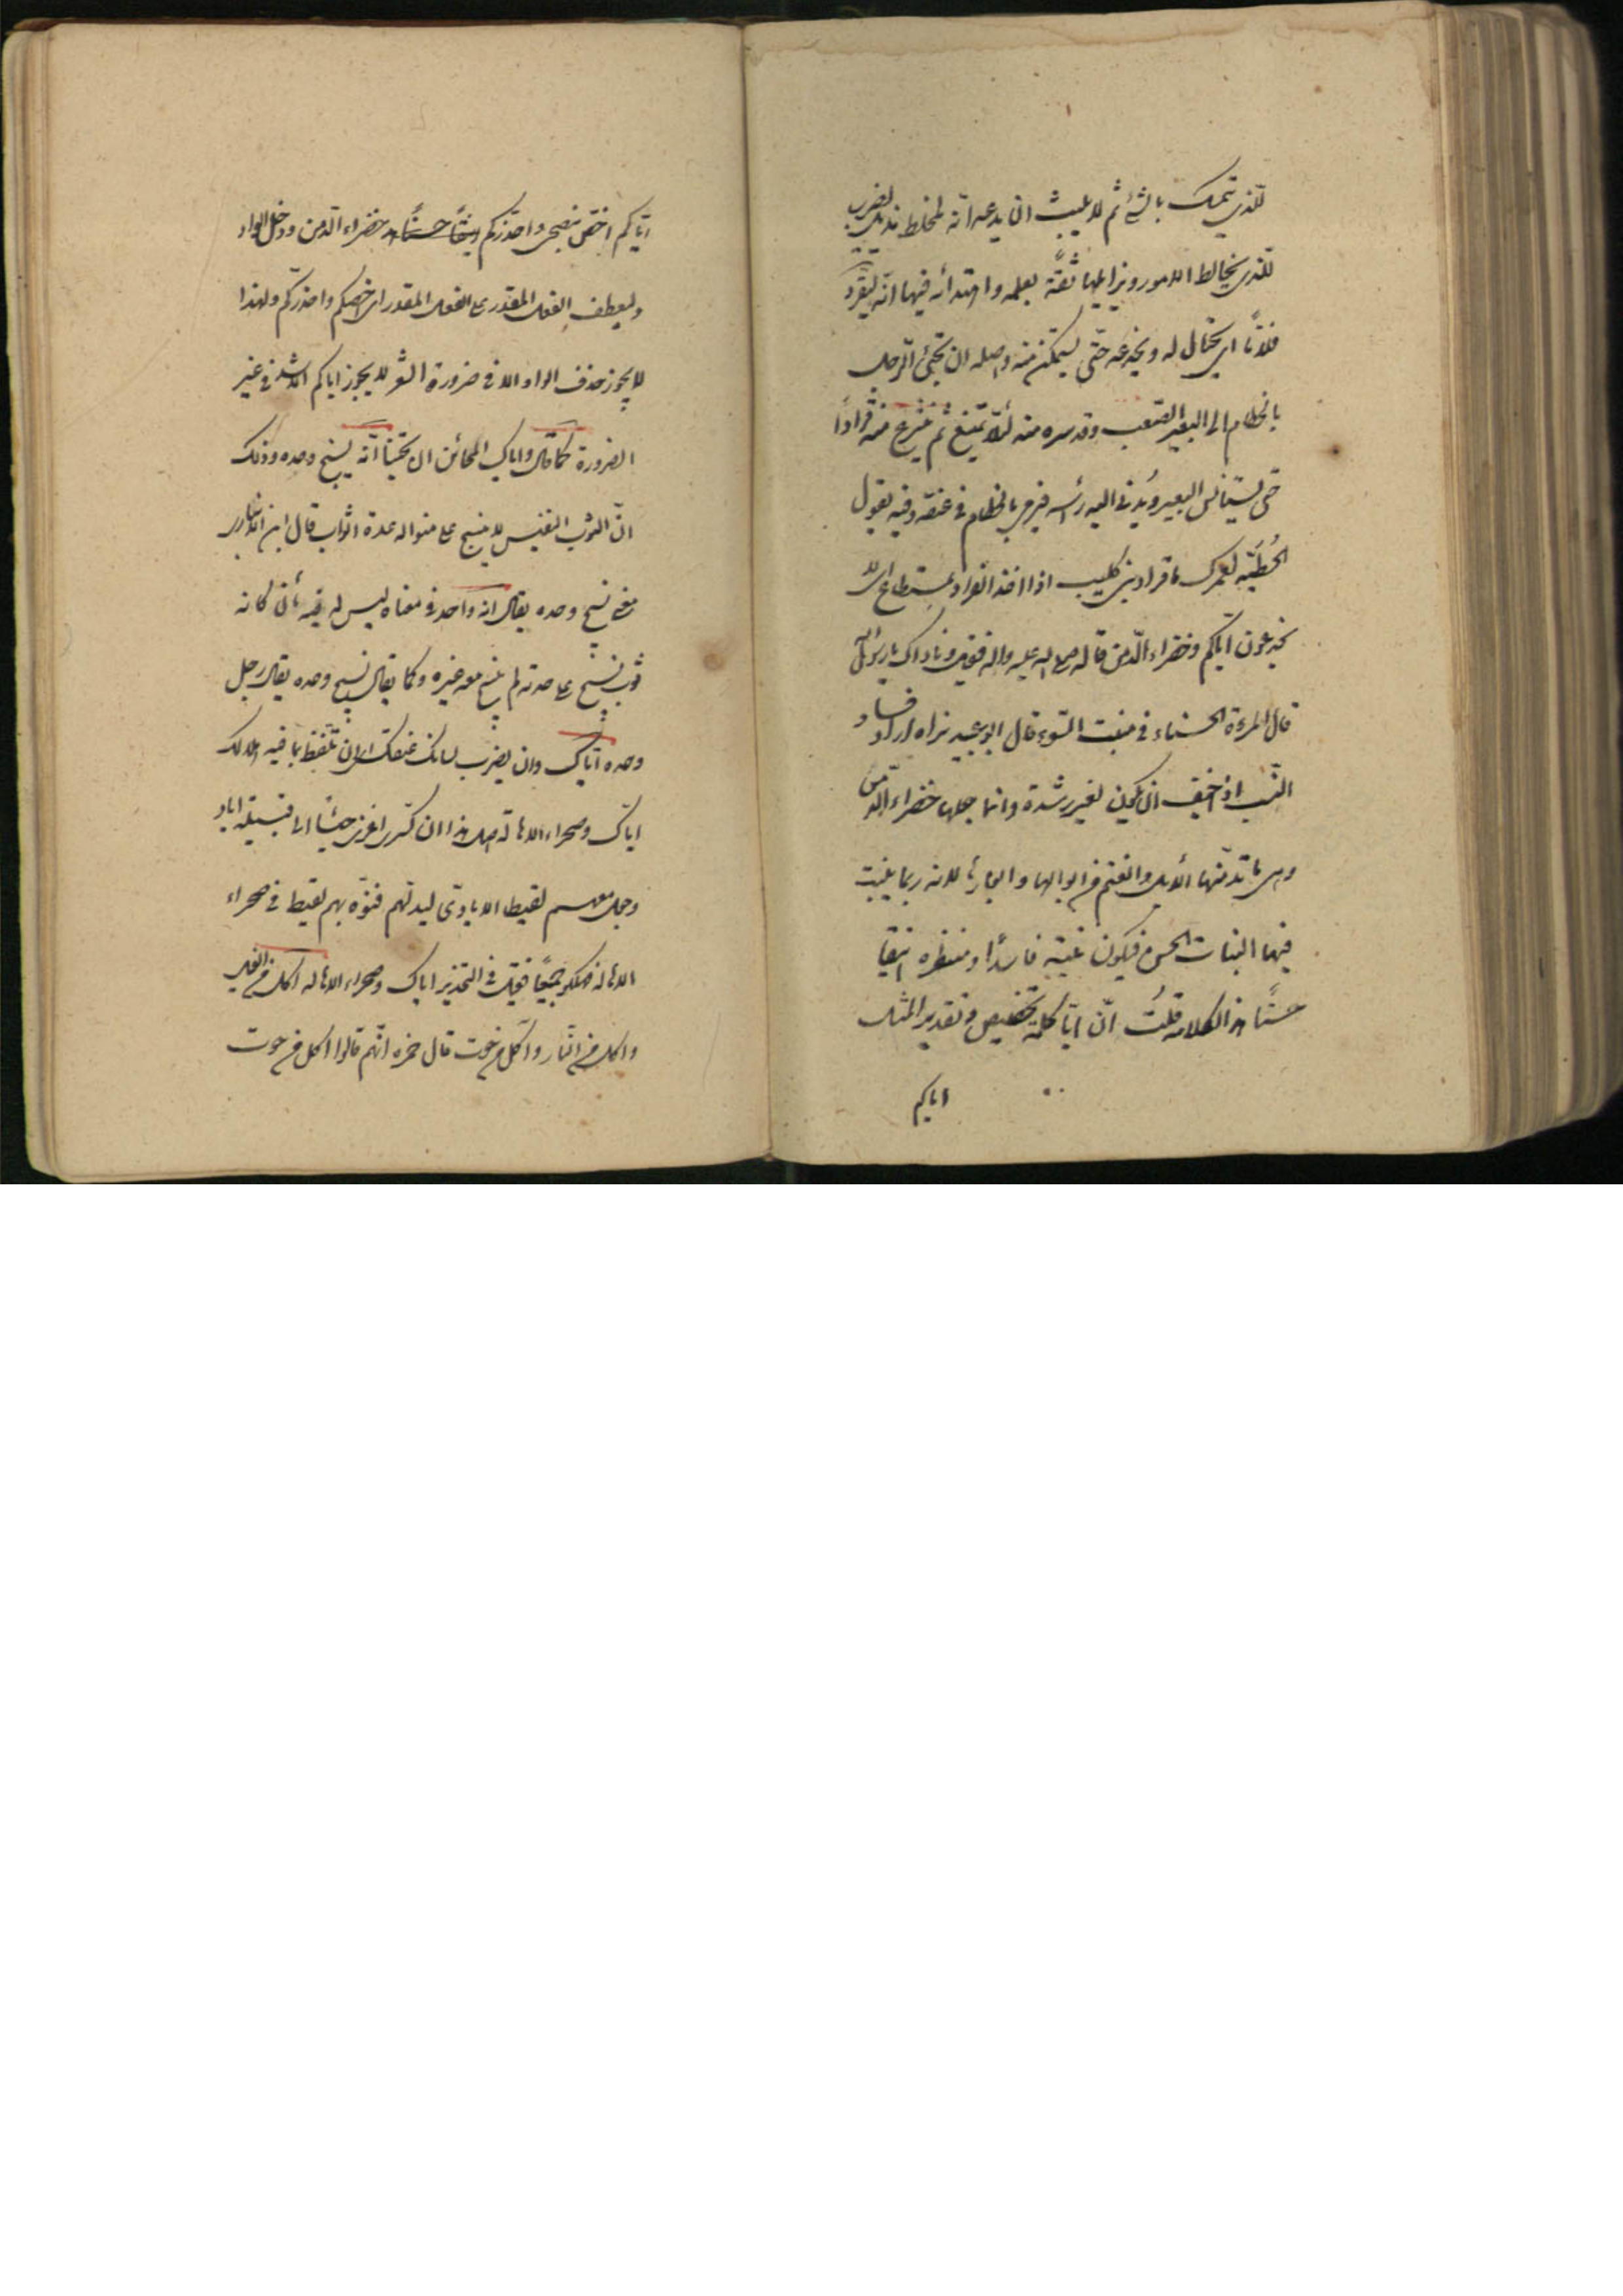 للّذي يتمسك بالشئ ثم لا يلبث ان يدعه انّه لمخلط مزيل يضرب
للّذي يخالط الامور ويزايلها ثقةً بعلمه واهتدائه فيها انّه ليقرّد
فلانًا اي يحتال له ويخدعه حتّى يستمكن منه واصله ان يجئ الرّجل
بالخطام الى البعير الصّعب وقد ستره منه لئلّا يمتنع ثم ينتزع منه قرادًا
حتى يستانس البعير ويُدنى اليه رأسه فيرمى بالخطام فى عنقه وفيه يقول
الحُطَيْئه لعمرك ما قراد بنى كليب اذا اخذ القراد بمستطاع اى لا
يخدعون ايّاكم وخضراء الدّمن قاله صلى الله عليه واله فقيل وما ذاك يا رسول الله
قال المرءة الحسناء فى منبت السّوء قال ابو عبيد نراه اراد فساد
النّسب اذا خيف ان يكون لغير رشدة وانما جعلها خضراء الدّمن
وهى ما تدمّنها الابل والغنم من ابوالها وابعارها لانه ربما ينبت
فيها النبات الحسن فيكون نبته فاسدًا ومنظره انيقا
حسنًا هذا كلامه قلتُ انّ ايّا كلمة تخصيص وتقدير المثل
اياكم
ايّاكم اخصّ بنصحى واحذّركم خضراء الدّمن ودخل الواو
وليعطف الفعل المقدر على الفعل المقدر اى اخصكم واحذركم ولهذا
لا يجوز حذف الواو الا فى ضرورة الشعر لا يجوز اياكم الاسد فى غير
الضرورة كما قال واياك المحائن ان تحينا انّه نسيج وحده وذلك
انّ الثوب النفيس لا ينسج على منواله عدة اثواب قال ابن الاعرابى
معنى نسيج وحده يقال انه واحد فى معناه ليس له فيه ثانى كانه
ثوب نسج على حدته لم ينسج معه غيره وكما يقال نسيج وحده يقال رجل
وحده ايّاك وان يضرب لسانك عنقك اى ان تلفظ بما فيه هلاكك
ايّاك وصحراء الاهالة اصل هذا ان كسرى اغزى جيشًا الى قبيلة اياد
وجعل معهم لقيط الايادىّ ليدلّهم فتوّه بهم لقيط فى صحراء
الاهالة فهلكو جميعًا فقيل فى التحذير اياك وصحراء الاهاله اكل من الفيل
واكل من النّار واكل من حوت قال حمزه انّهم قالوا اكل من حوت